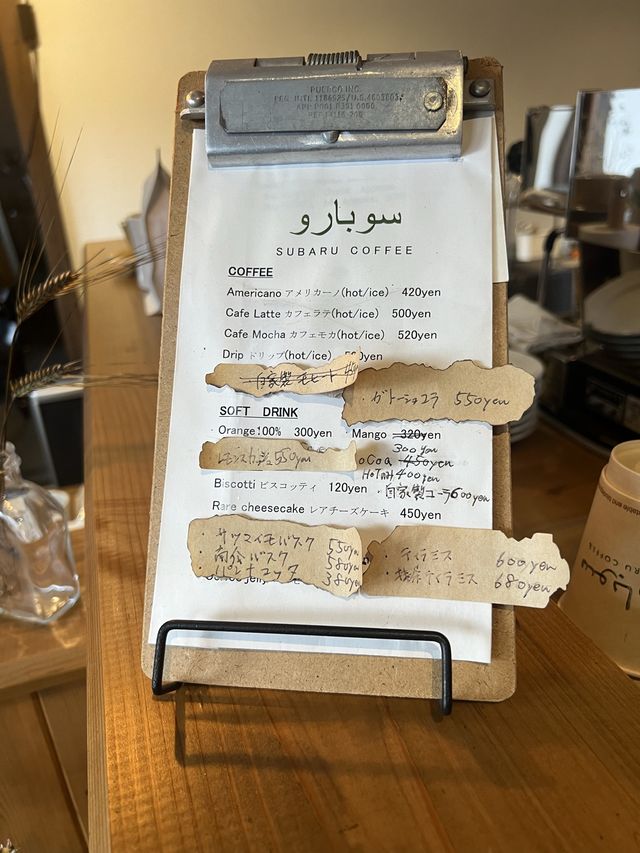 PULPCO INC.
سوبارو
SUBARU COFFEE
COFFEE
Americano アメリカーノ(hot/ice) 420yen
Cafe Latte カフェラテ(hot/ice) 500yen
Cafe Mocha カフェモカ(hot/ice) 520yen
Drip ドリップ(hot/ice) yen
自家製モヒート
・ガトーショコラ 550yen
SOFT DRINK
・Orange100% 300yen ・Mango 320yen
300yen
レモンスカッシュ550yen
ocoa 450yen
Hot 400yen
Biscotti ビスコッティ 120yen ・自家製コーラ600yen
Rare cheesecake レアチーズケーキ 450yen
・サツマイモバスク 550yen
・南介バスク 580yen
・パンナコッタ 380yen
・ティラミス 600yen
・抹茶ティラミス 680yen
سوبارو
RU COFFEE